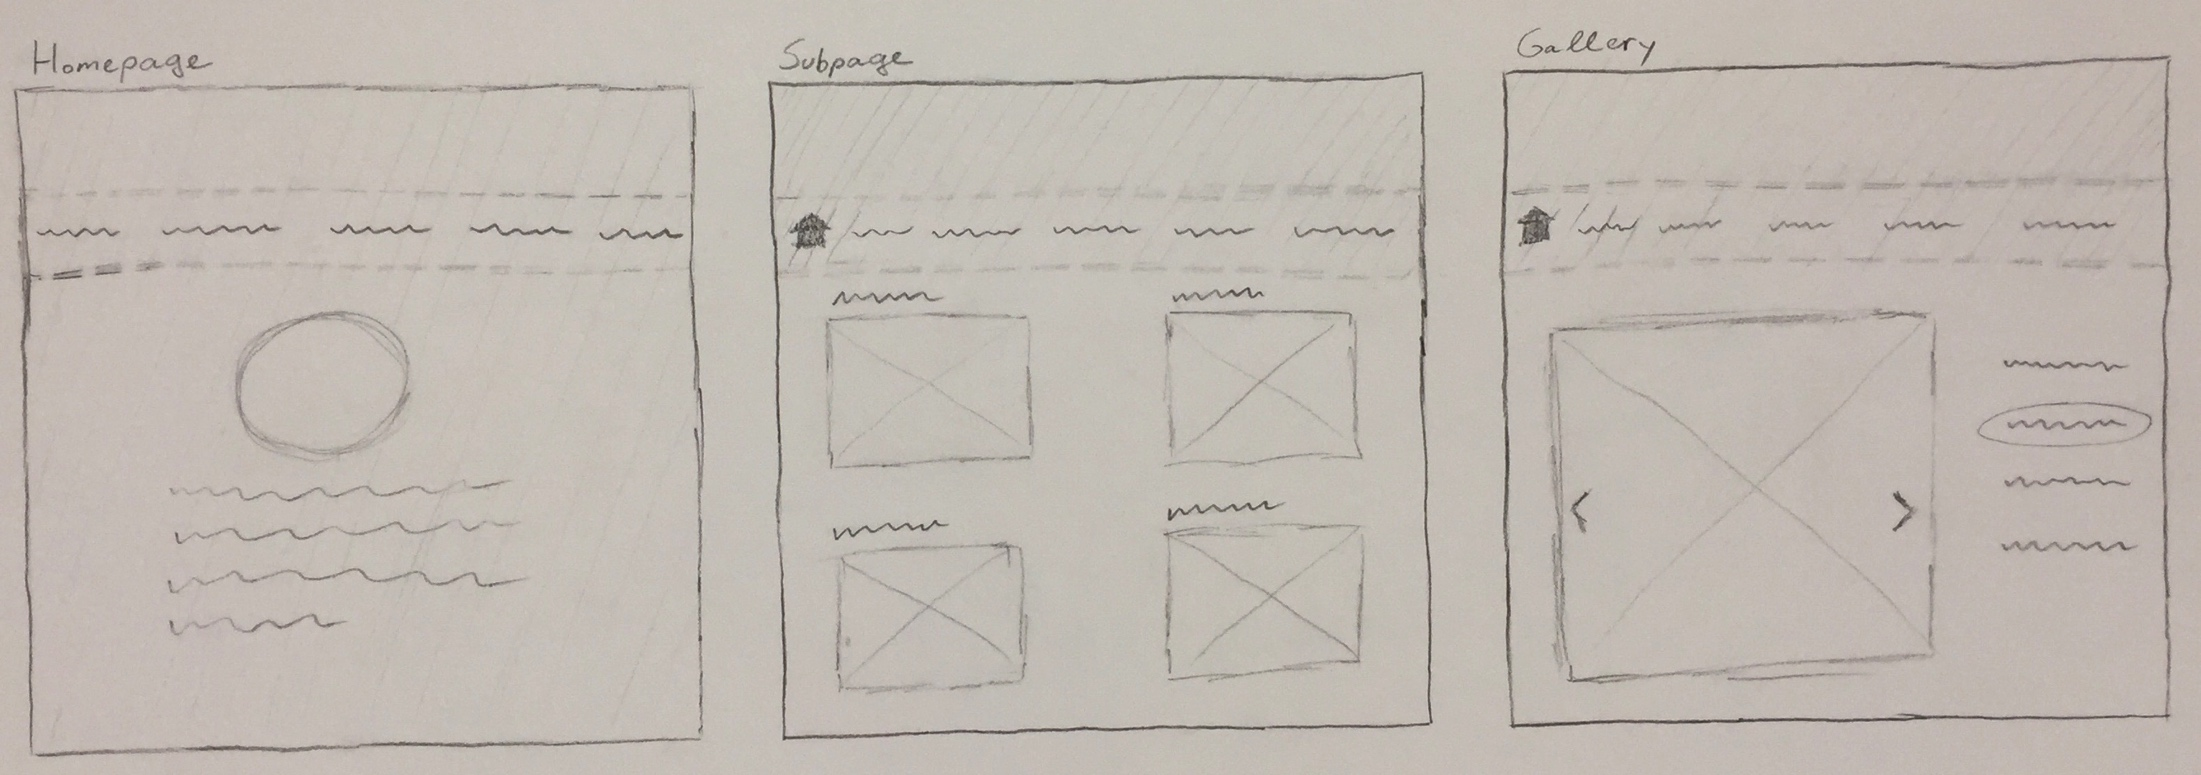 Homepage
Subpage
Gallery